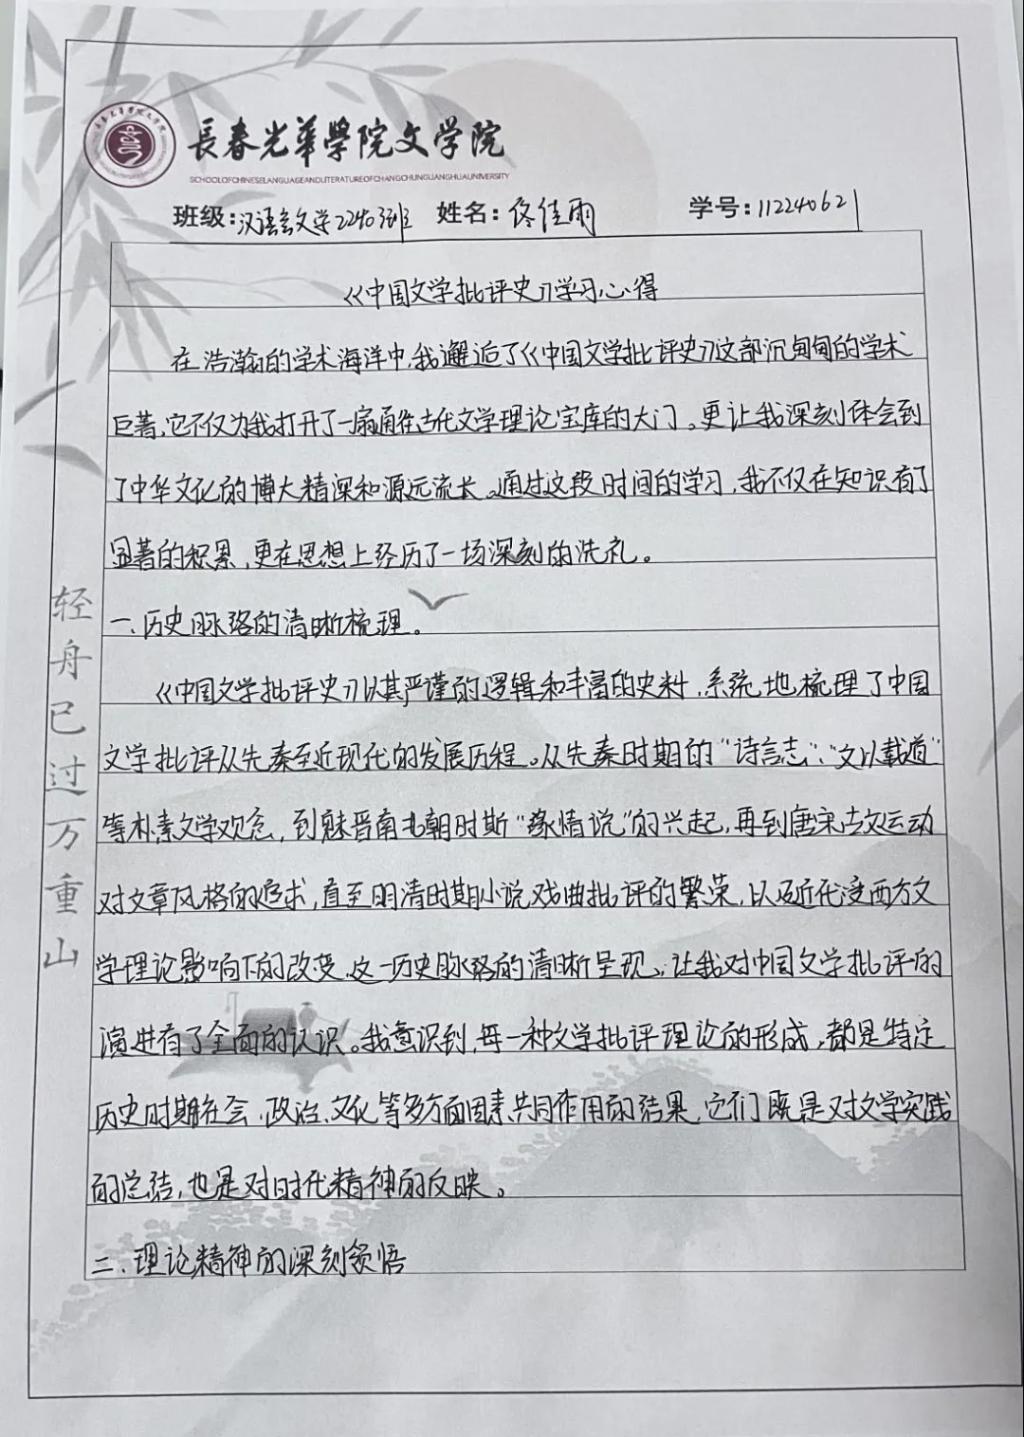 長春光華學院文学院
SCHOOL OF CHINESE LANGUAGE AND LITERATURE OF CHANGCHUN GUANGHUA UNIVERSITY
班级:汉语言文学22403班 姓名:佟佳雨 学号:112240621
《中国文学批评史》学习心得
在浩瀚的学术海洋中,我邂逅了《中国文学批评史》这部沉甸甸的学术
巨著,它不仅为我打开了一扇通往古代文学理论宝库的大门。更让我深刻体会到
了中华文化的博大精深和源远流长。通过这段时间的学习,我不仅在知识有了
显著的积累,更在思想上经历了一场深刻的洗礼。
一、历史脉络的清晰梳理。
《中国文学批评史》以其严谨的逻辑和丰富的史料,系统地梳理了中国
文学批评从先秦至近现代的发展历程。从先秦时期的"诗言志"、"文以载道"
等朴素文学观念,到魅晋南北朝时斯"缘情说"的兴起,再到唐宋古文运动
对文章风格的追求,直至明清时期小说戏曲批评的繁荣,以及近代受西方文
学理论影响下的改变,这一历史脉络的清晰呈现,让我对中国文学批评的
演进有了全面的认识。我意识到,每一种文学批评理论的形成,都是特定
历史时期社会、政治、文化等多方面因素共同作用的结果,它们既是对文学实践
的总结,也是对时代精神的反映。
二、理论精神的深刻领悟
轻舟已过万重山